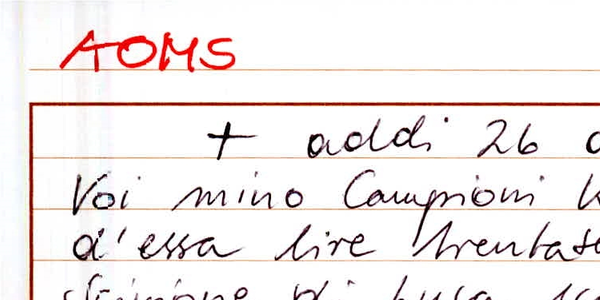 AOMS
+ addi 26
Voi mino Campioni
d'essa lire
di